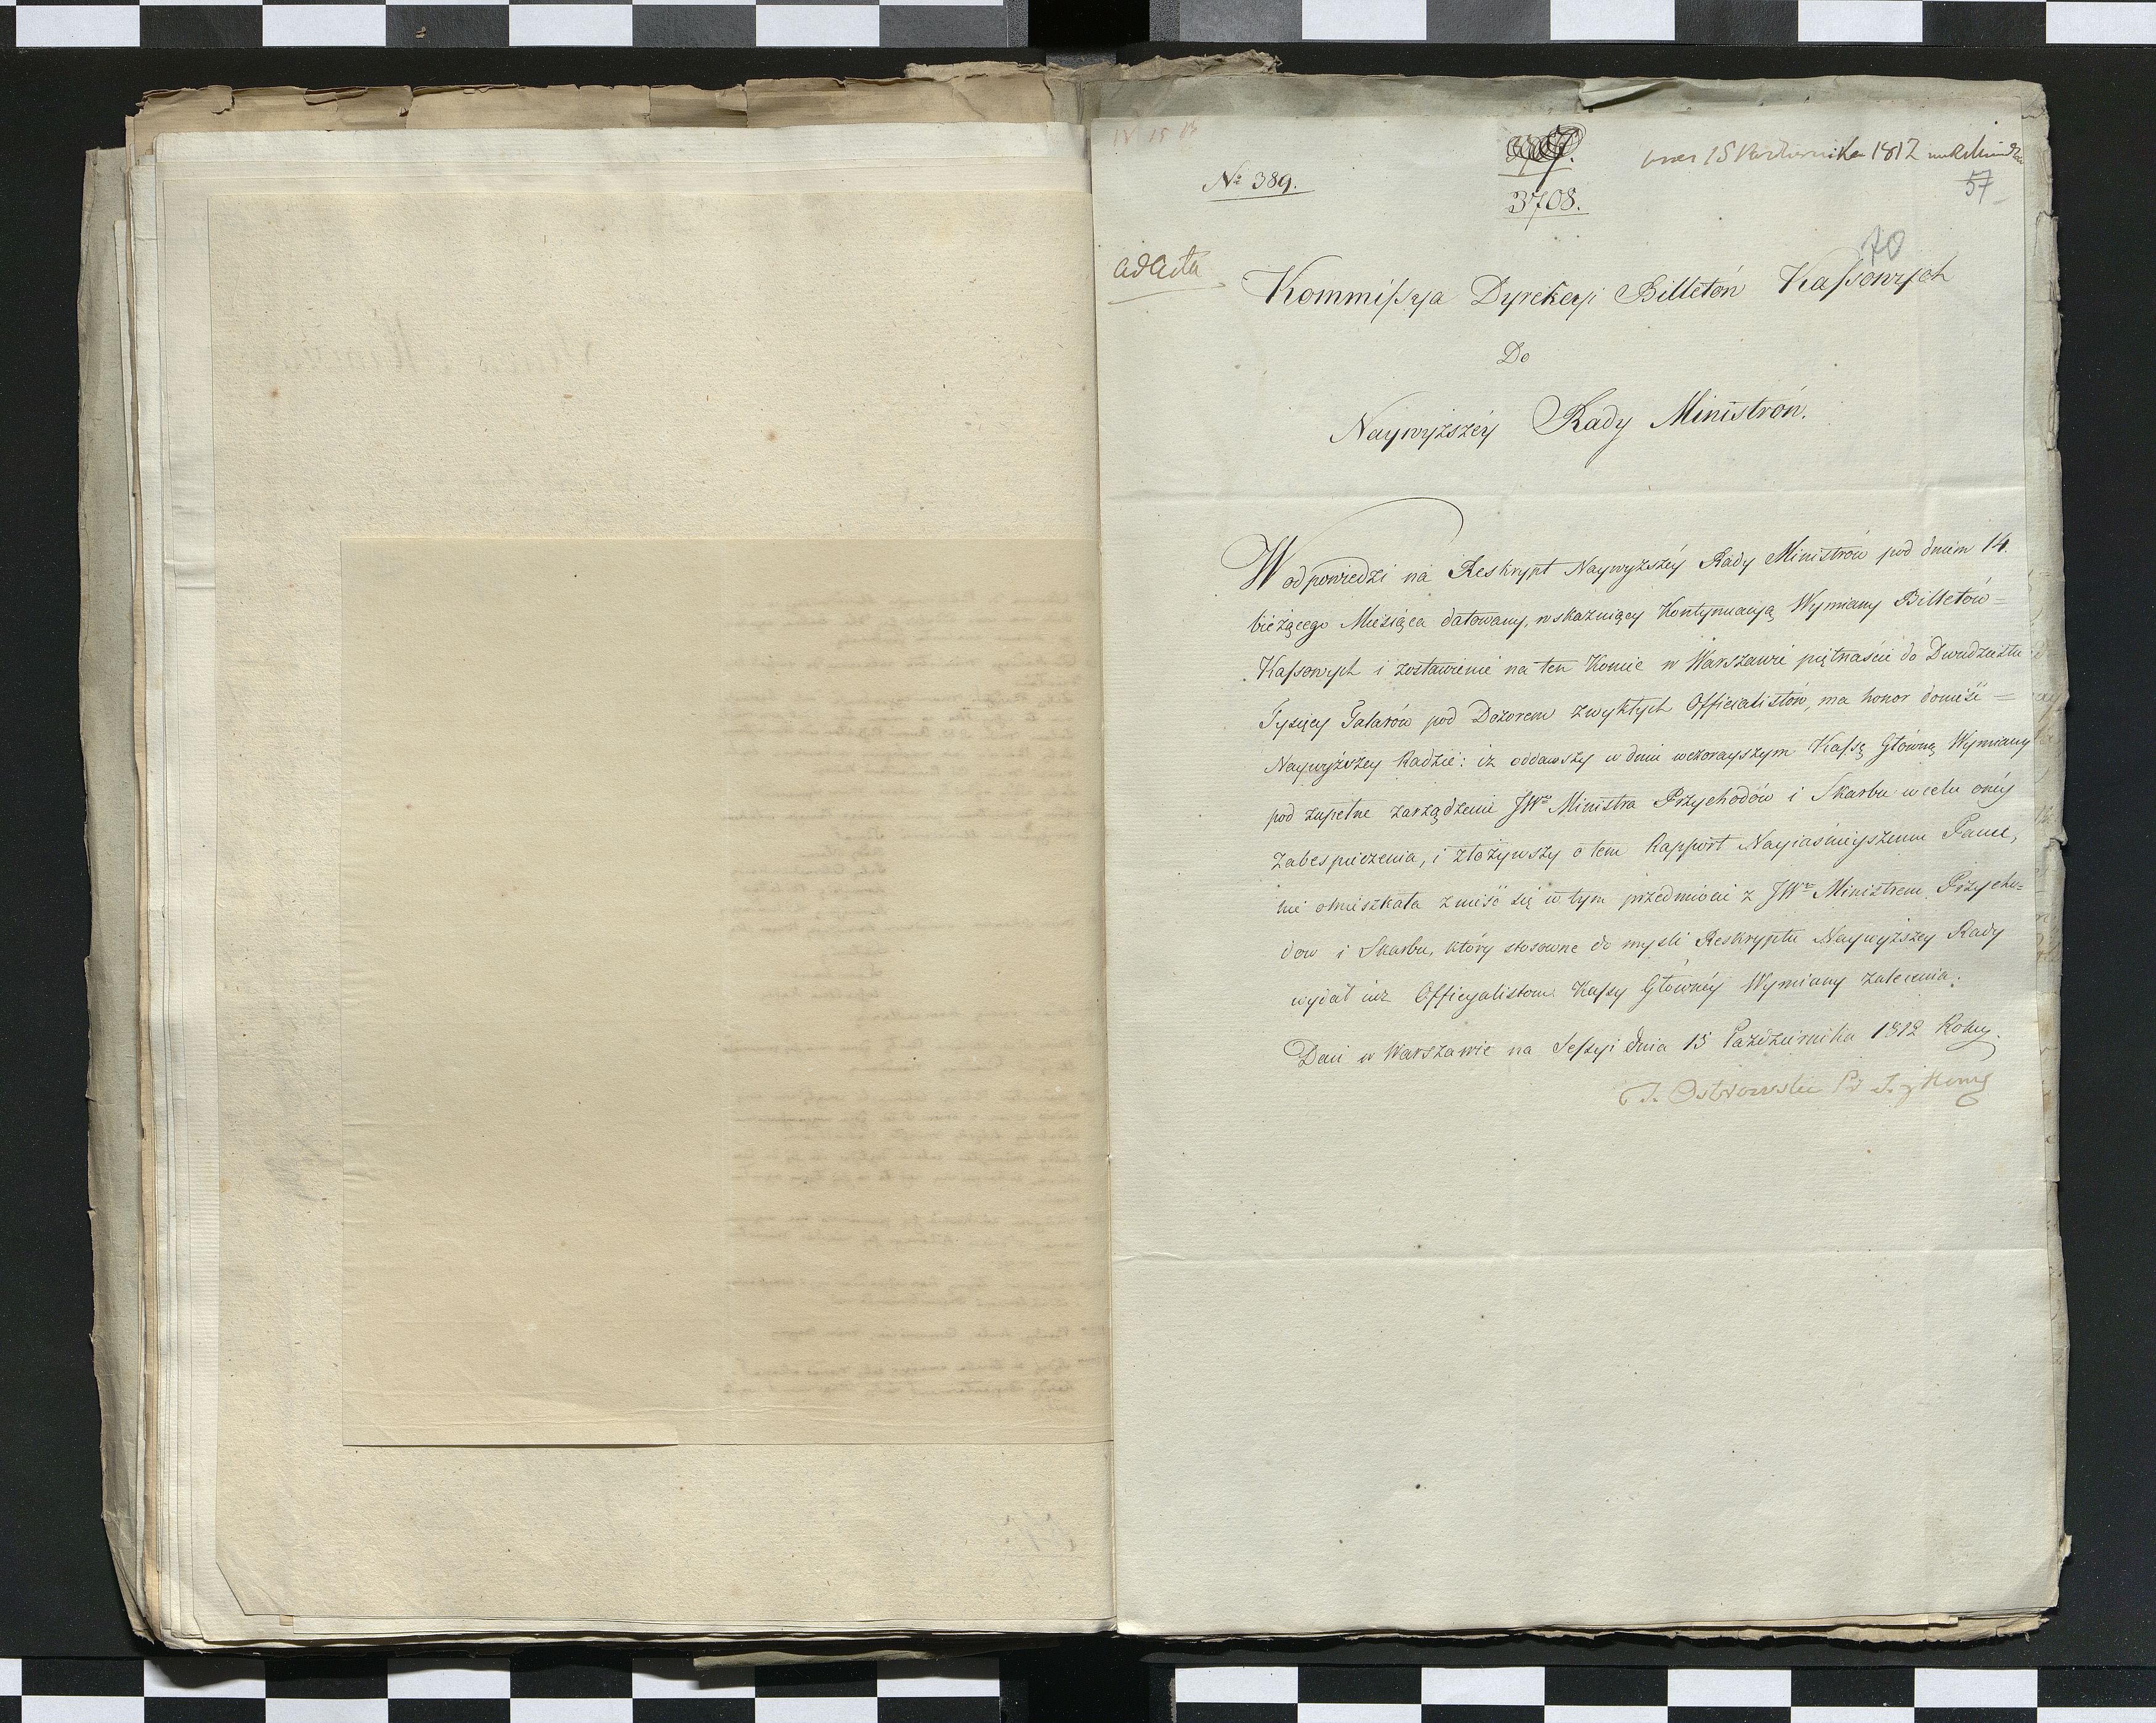 IV 15
№ 389.
3708.
15 Października 1812
57
70
ad Acta
Kommissya Dyrekcyi Billetów Kassowych
Do
Naywyższéy Rady Ministrów.
W odpowiedzi na Reskrypt Naywyższéy Rady Ministrów pod dniem 14.
bieżącego Miesiąca datowany, wskazuiący Kontynuacyą Wymiany Billetów=
Kassowych i zostawienie na ten Koniec w Warszawie piętnaście do Dwudziestu
Tysięcy Talarów pod Dozorem zwykłych Officialistów, ma honor donieść =
Naywyższey Radzie: iż oddawszy w dniu wczorayszym Kassę Główną Wymiany
pod zupełne zarządzenie JWo Ministra Przychodów i Skarbu w celu onéy
zabespieczenia, i złożywszy o tem Rapport Nayiaśnieyszemu Panu,
nie omieszkała znieść się w tym przedmiocie z JWm Ministrem Przycho=
dow i Skarbu, który stosownie do myśli Reskryptu Naywyższey Rady
wydał iuż Officyalistom Kassy Głównéy Wymiany zalecenia.
Dań w Warszawie na Sessyi dnia 15 Października 1812 Roku.
T. Ostrowski Pr